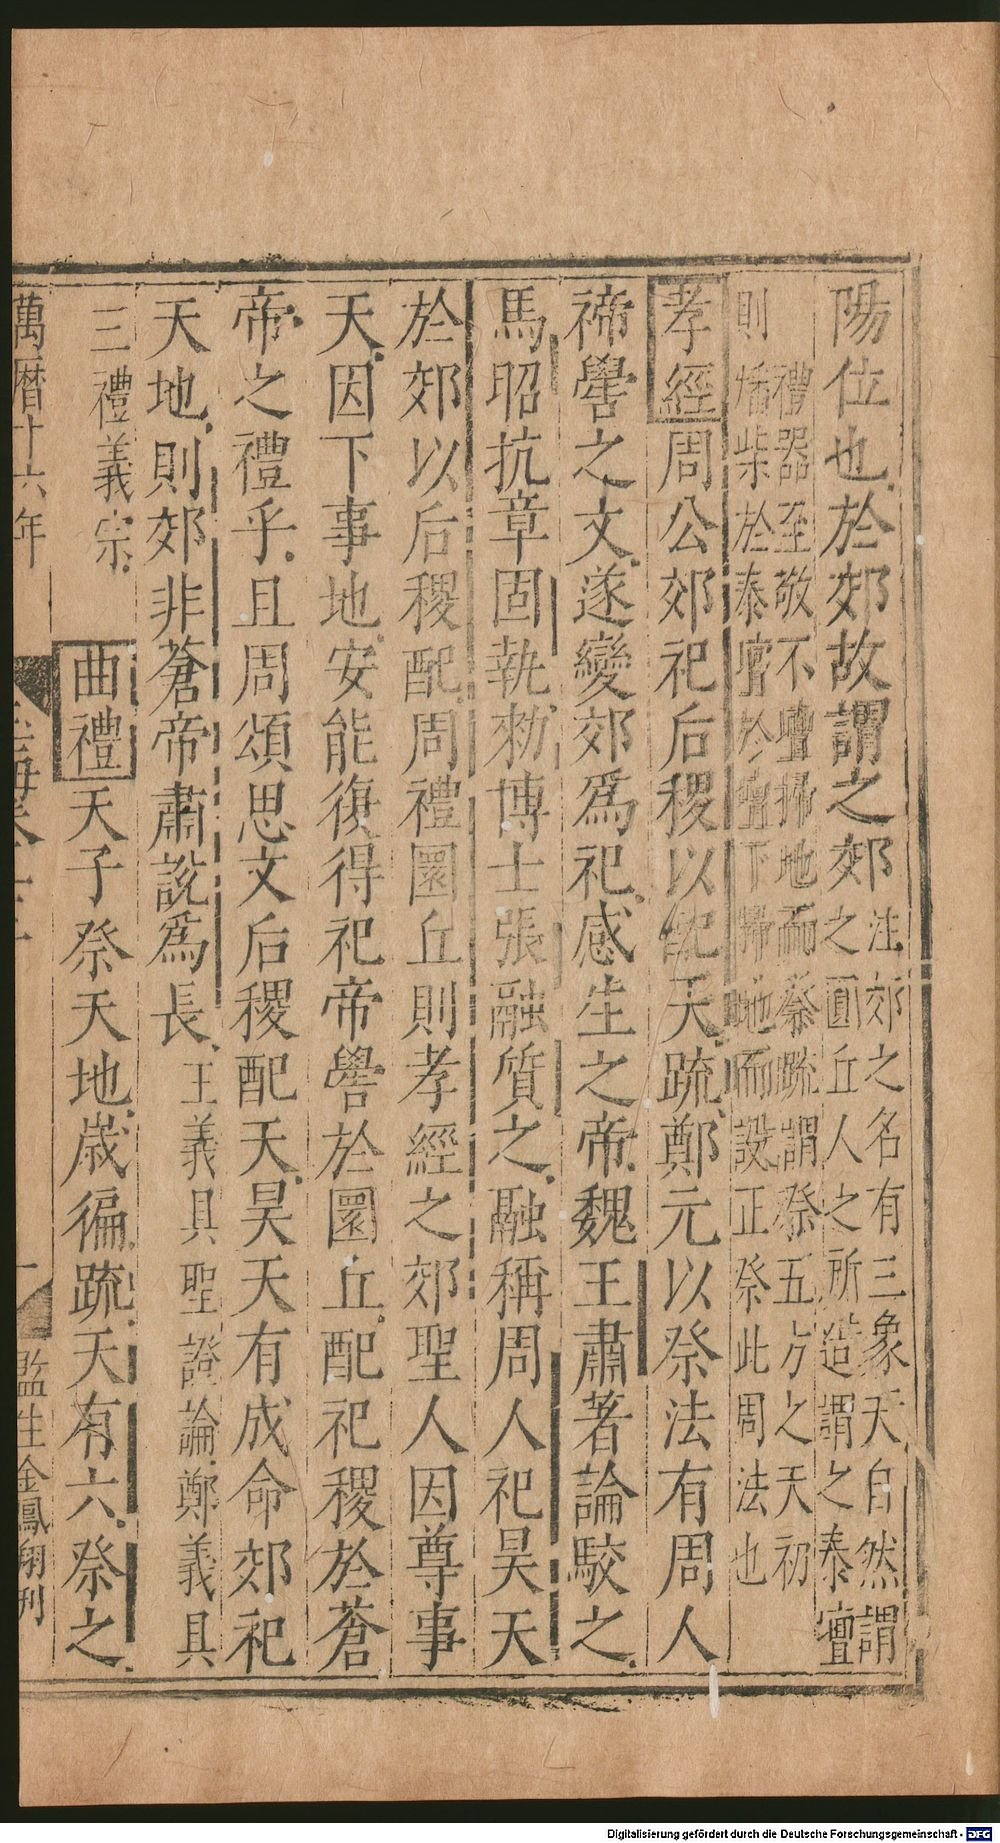 陽位也於郊故謂之郊注郊之名有三象天自然謂
之圓丘人之所造謂之泰壇
禮器至敬不壇掃地而祭疏謂祭五方之天初
則燔柴於泰壇於壇下掃地而設正祭此周法也
孝經周公郊祀后稷以配天疏鄭元以祭法有周人
禘嚳之文遂變郊爲祀感生之帝魏王肅著論駮之
馬昭抗章固執勑博士張融質之融稱周人祀昊天
於郊以后稷配周禮圜丘則孝經之郊聖人因尊事
天因下事地安能復得祀帝嚳於圜丘配祀稷於蒼
帝之禮乎且周頌思文后稷配天昊天有成命郊祀
天地則郊非蒼帝肅說爲長王義具聖證論鄭義具
三禮義宗曲禮天子祭天地歲徧疏天有六祭之
萬曆十六年
監生金鳳翔刊
Digitalisierung gefördert durch die Deutsche Forschungsgemeinschaft - DFG